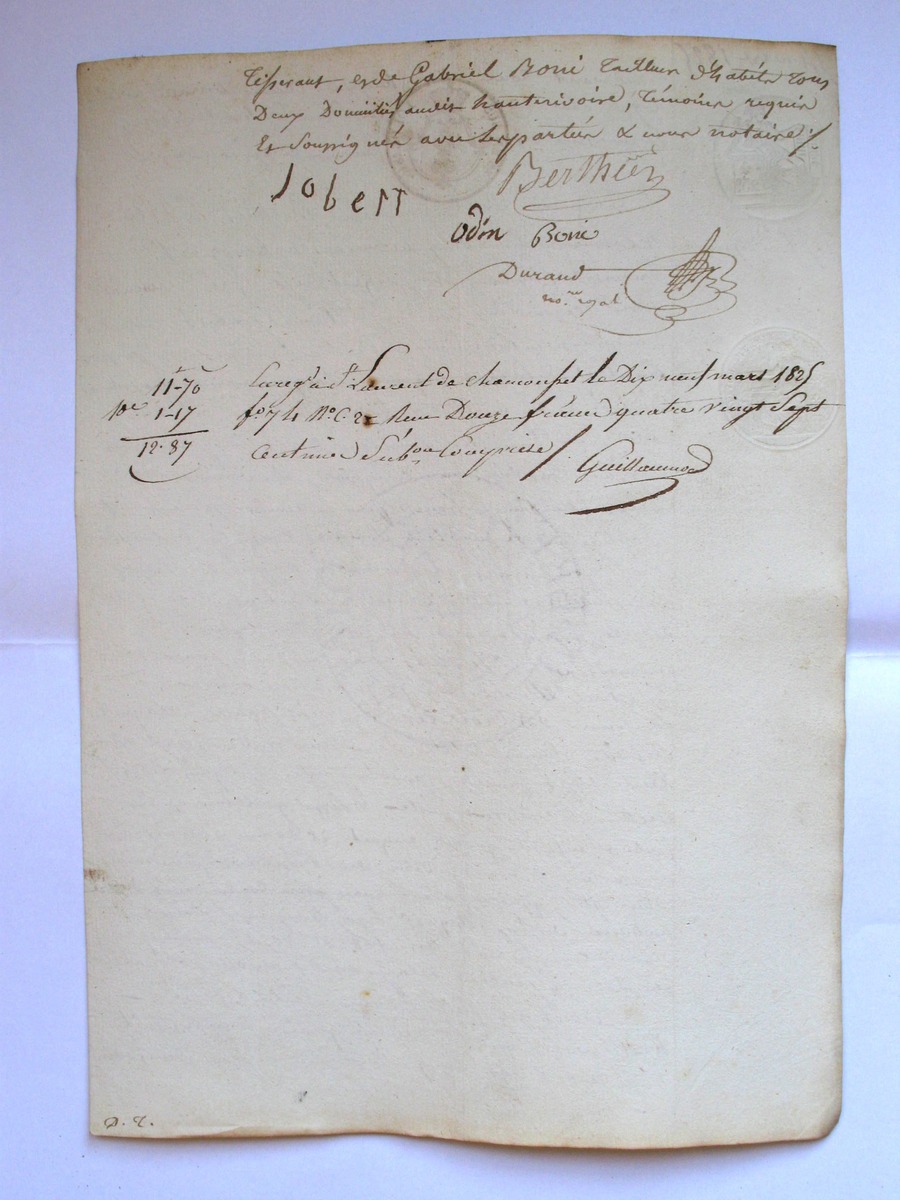 Tisserant, et de Gabriel Boni Tailleur d'habits tous
Deux Domiciliés audit hauterivoire, témoins requis
Et Soussignés avec les parties & nous notaire ./.
Jobert
Berthier
Odin Boni
Durand
no.re royal
11-70
10e 1-17
12-87
Enregé à St Laurent de chamousset le Dix neuf mars 1825
fo 74 Ro C. 2 Reçu Douze francs quatre vingt Sept
Centimes Subon Comprise /. Guillaumod
D. T.